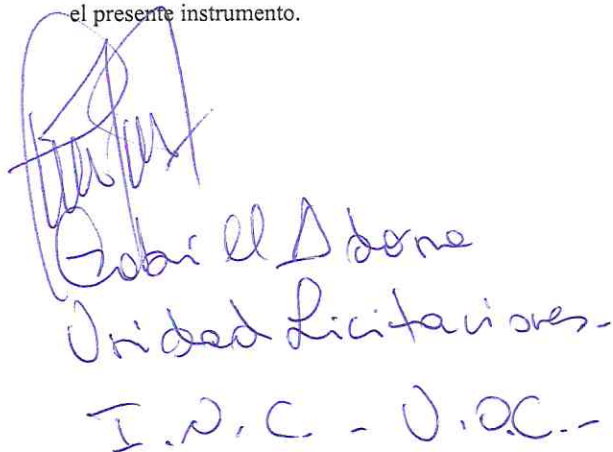 el presente instrumento.
Gabriel Adorno
Unidad Licitaciones.-
I.N.C. - U.O.C.-